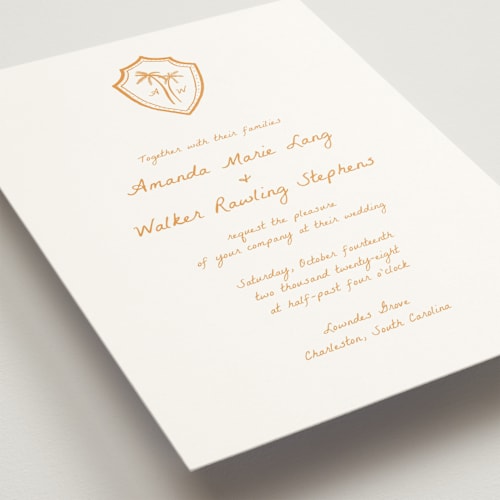 A W
Together with their families
Amanda Marie Lang
+
Walker Rawling Stephens
request the pleasure
of your company at their wedding
Saturday, October fourteenth
two thousand twenty-eight
at half-past four o'clock
Lowndes Grove
Charleston, South Carolina